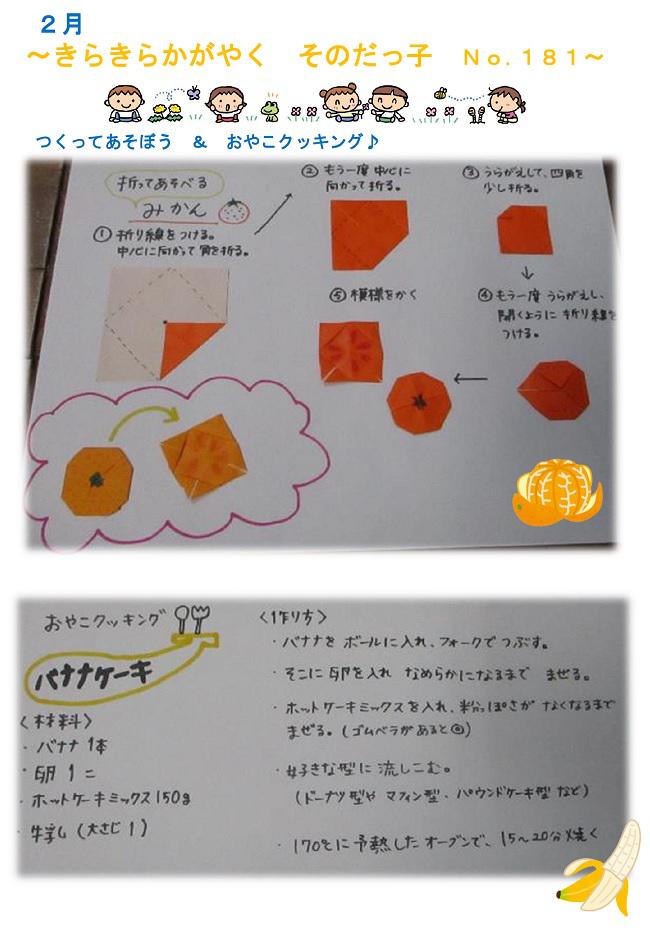 ２月
～きらきらかがやく　そのだっ子　Ｎｏ.１８１～
つくってあそぼう　＆　おやこクッキング♪
折ってあそべる
みかん
① 折り線をつける。
中心に向かって角を折る。
② もう一度 中心に
向かって折る。
③ うらがえして、四角を
少し折る。
④ もう一度 うらがえし、
開くように 折り線を
つける。
⑤ 模様をかく
おやこクッキング
バナナケーキ
〈材料〉
・バナナ 1本
・卵 1コ
・ホットケーキミックス 150g
・牛乳 (大さじ1)
〈作り方〉
・バナナを ボールに入れ、フォークで つぶす。
・そこに 卵を入れ なめらかになるまで まぜる。
・ホットケーキミックスを入れ、粉っぽさが なくなるまで
まぜる。(ゴムベラがあると◎)
・好きな型に 流しこむ。
(ドーナツ型や マフィン型、パウンドケーキ型 など)
・170℃に予熱した オーブンで、15～20分焼く